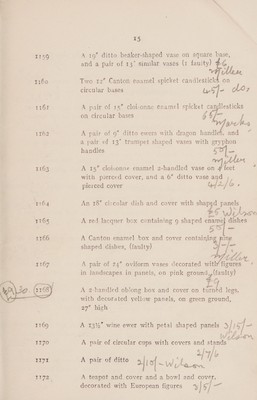 15
1159 A 19" ditto beaker-shaped vase on square base,
and a pair of 13" similar vases (1 faulty) £6
Miller
1160 Two 12" Canton enamel pricket candlesticks on
circular bases 45/- do.
1161 A pair of 15" cloisonne enamel pricket candlesticks
on circular bases 65/-
Marks
1162 A pair of 9" ditto vases with dragon handles, and
a pair of 13" trumpet shaped vases with gryphon
handles 50/-
Miller
1163 A 15" cloisonne enamel 2-handled vase on 4 feet
with pierced cover, and a 6" ditto vase and
pierced cover 4/2/6.
1164 An 18" circular dish and cover with shaped panels
£5 Wilson
1165 A red lacquer box containing 9 shaped enamel dishes
50/-
1166 A Canton enamel box and cover containing nine
shaped dishes, (faulty)
1167 A pair of 24" oviform vases decorated with figures
in landscapes in panels, on pink ground, (faulty)
£9
1168 A 2-handled oblong box and cover on turned legs,
with decorated yellow panels, on green ground,
27" high
1169 A 13½" wine ewer with petal shaped panels 3/15/-
Wilson
1170 A pair of circular cups with covers and stands
2/7/6
1171 A pair of ditto 2/10/- Wilson
1172 A teapot and cover and a bowl and cover,
decorated with European figures 2/5/-